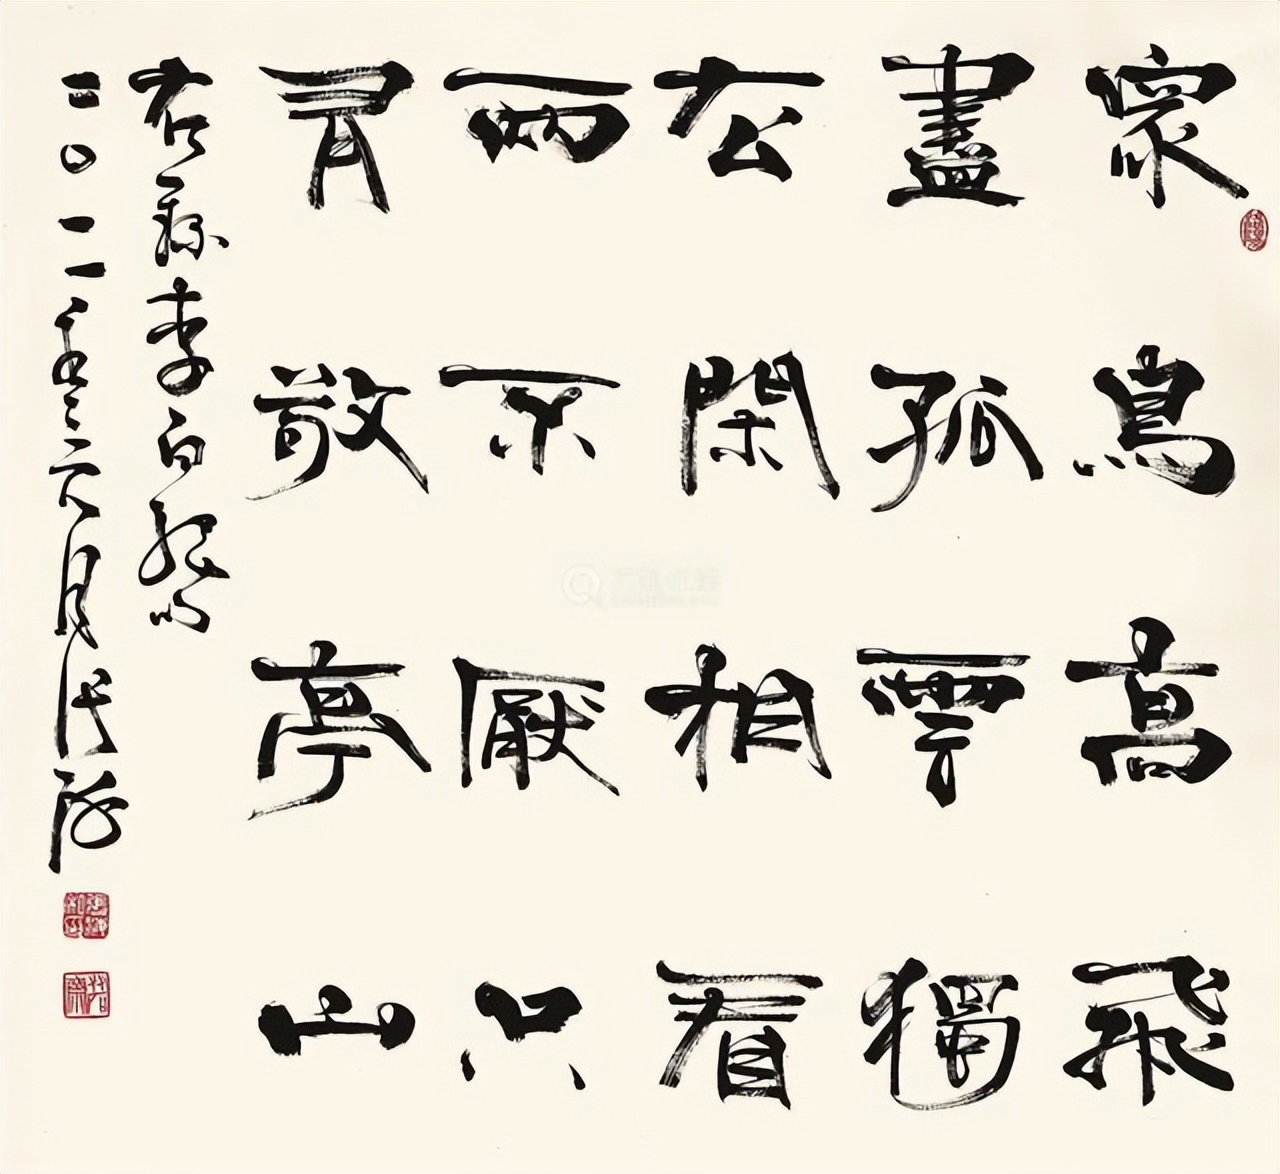 眾鳥高飛
盡孤雲獨
去閑相看
兩不厭只
有敬亭山
右錄李白
二〇一一年六月